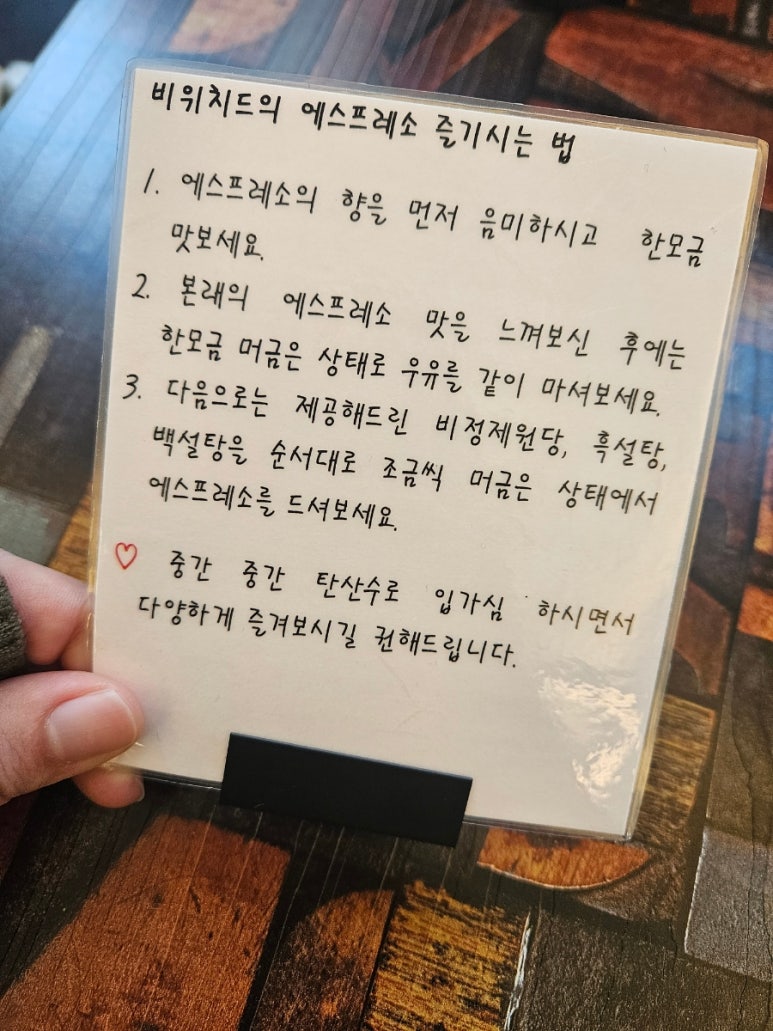 비위치드의 에스프레소 즐기시는 법
1. 에스프레소의 향을 먼저 음미하시고 한모금
맛보세요.
2. 본래의 에스프레소 맛을 느껴보신 후에는
한모금 머금은 상태로 우유를 같이 마셔보세요.
3. 다음으로는 제공해드린 비정제원당, 흑설탕,
백설탕을 순서대로 조금씩 머금은 상태에서
에스프레소를 드셔보세요.
♡ 중간 중간 탄산수로 입가심 하시면서
다양하게 즐겨보시길 권해드립니다.